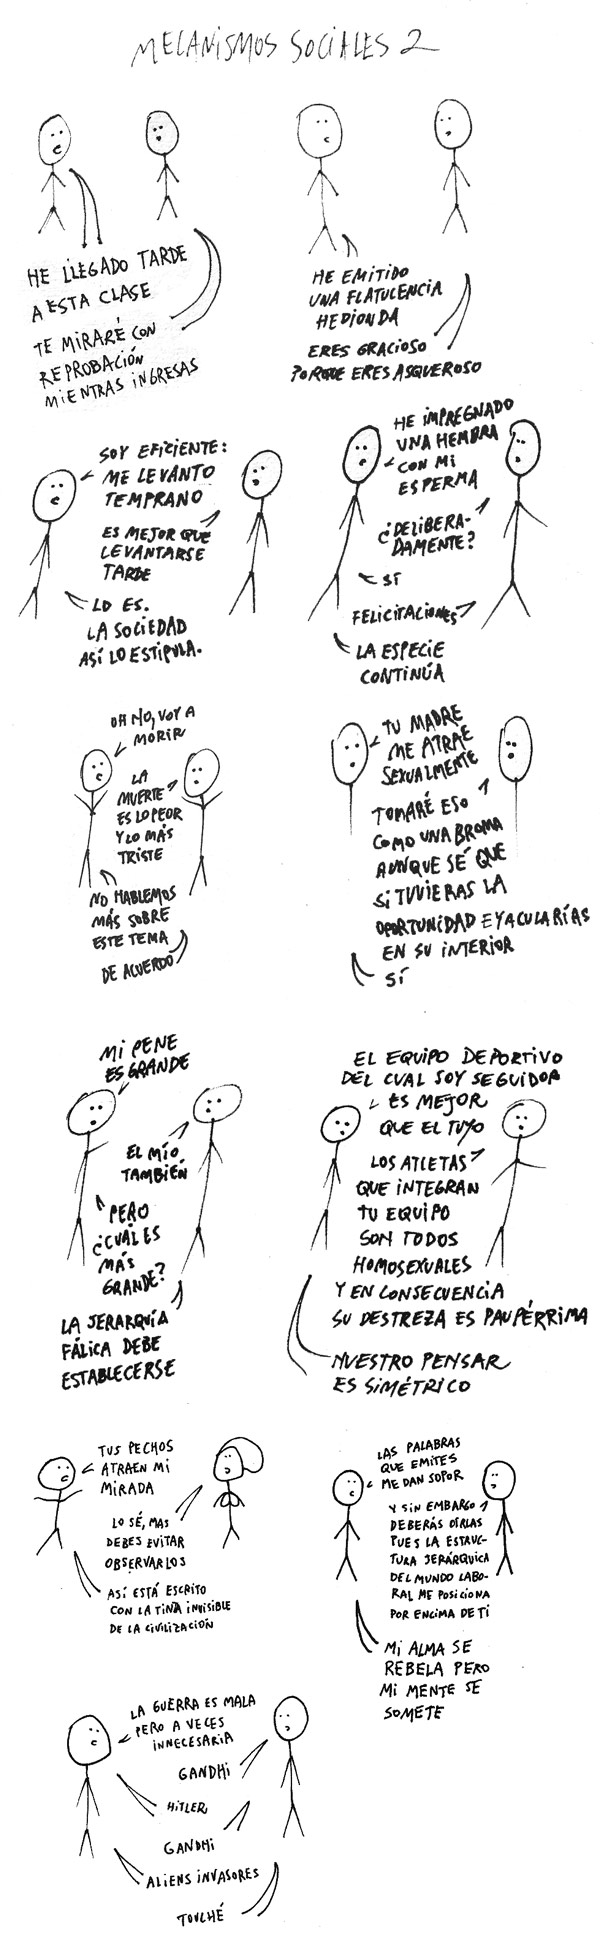 MECANISMOS SOCIALES 2
HE LLEGADO TARDE
A ESTA CLASE
TE MIRARÉ CON
REPROBACIÓN
MIENTRAS INGRESAS
HE EMITIDO
UNA FLATULENCIA
HEDIONDA
ERES GRACIOSO
PORQUE ERES ASQUEROSO
SOY EFICIENTE:
ME LEVANTO
TEMPRANO
ES MEJOR QUE
LEVANTARSE
TARDE
LO ES.
LA SOCIEDAD
ASÍ LO ESTIPULA.
HE IMPREGNADO
UNA HEMBRA
CON MI
ESPERMA
¿DELIBERA-
DAMENTE?
SÍ
FELICITACIONES
LA ESPECIE
CONTINÚA
OH NO, VOY A
MORIR
LA
MUERTE
ES LO PEOR
Y LO MÁS
TRISTE
NO HABLEMOS
MÁS SOBRE
ESTE TEMA
DE ACUERDO
TU MADRE
ME ATRAE
SEXUALMENTE
TOMARÉ ESO
COMO UNA BROMA
AUNQUE SÉ QUE
SI TUVIERAS LA
OPORTUNIDAD EYACULARÍAS
EN SU INTERIOR
SÍ
MI PENE
ES GRANDE
EL MÍO
TAMBIÉN
PERO
¿CUÁL ES
MÁS
GRANDE?
LA JERARQUÍA
FÁLICA DEBE
ESTABLECERSE
EL EQUIPO DEPORTIVO
DEL CUAL SOY SEGUIDOR
ES MEJOR
QUE EL TUYO
LOS ATLETAS
QUE INTEGRAN
TU EQUIPO
SON TODOS
HOMOSEXUALES
Y EN CONSECUENCIA
SU DESTREZA ES PAUPÉRRIMA
NUESTRO PENSAR
ES SIMÉTRICO
TUS PECHOS
ATRAEN MI
MIRADA
LO SÉ, MAS
DEBES EVITAR
OBSERVARLOS
ASÍ ESTÁ ESCRITO
CON LA TINTA INVISIBLE
DE LA CIVILIZACIÓN
LAS PALABRAS
QUE EMITES
ME DAN SOPOR
Y SIN EMBARGO
DEBERÁS OÍRLAS
PUES LA ESTRUC-
TURA JERÁRQUICA
DEL MUNDO LABO-
RAL ME POSICIONA
POR ENCIMA DE TI
MI ALMA SE
REBELA PERO
MI MENTE SE
SOMETE
LA GUERRA ES MALA
PERO A VECES
INNECESARIA
GANDHI
HITLER
GANDHI
ALIENS INVASORES
TOUCHÉ